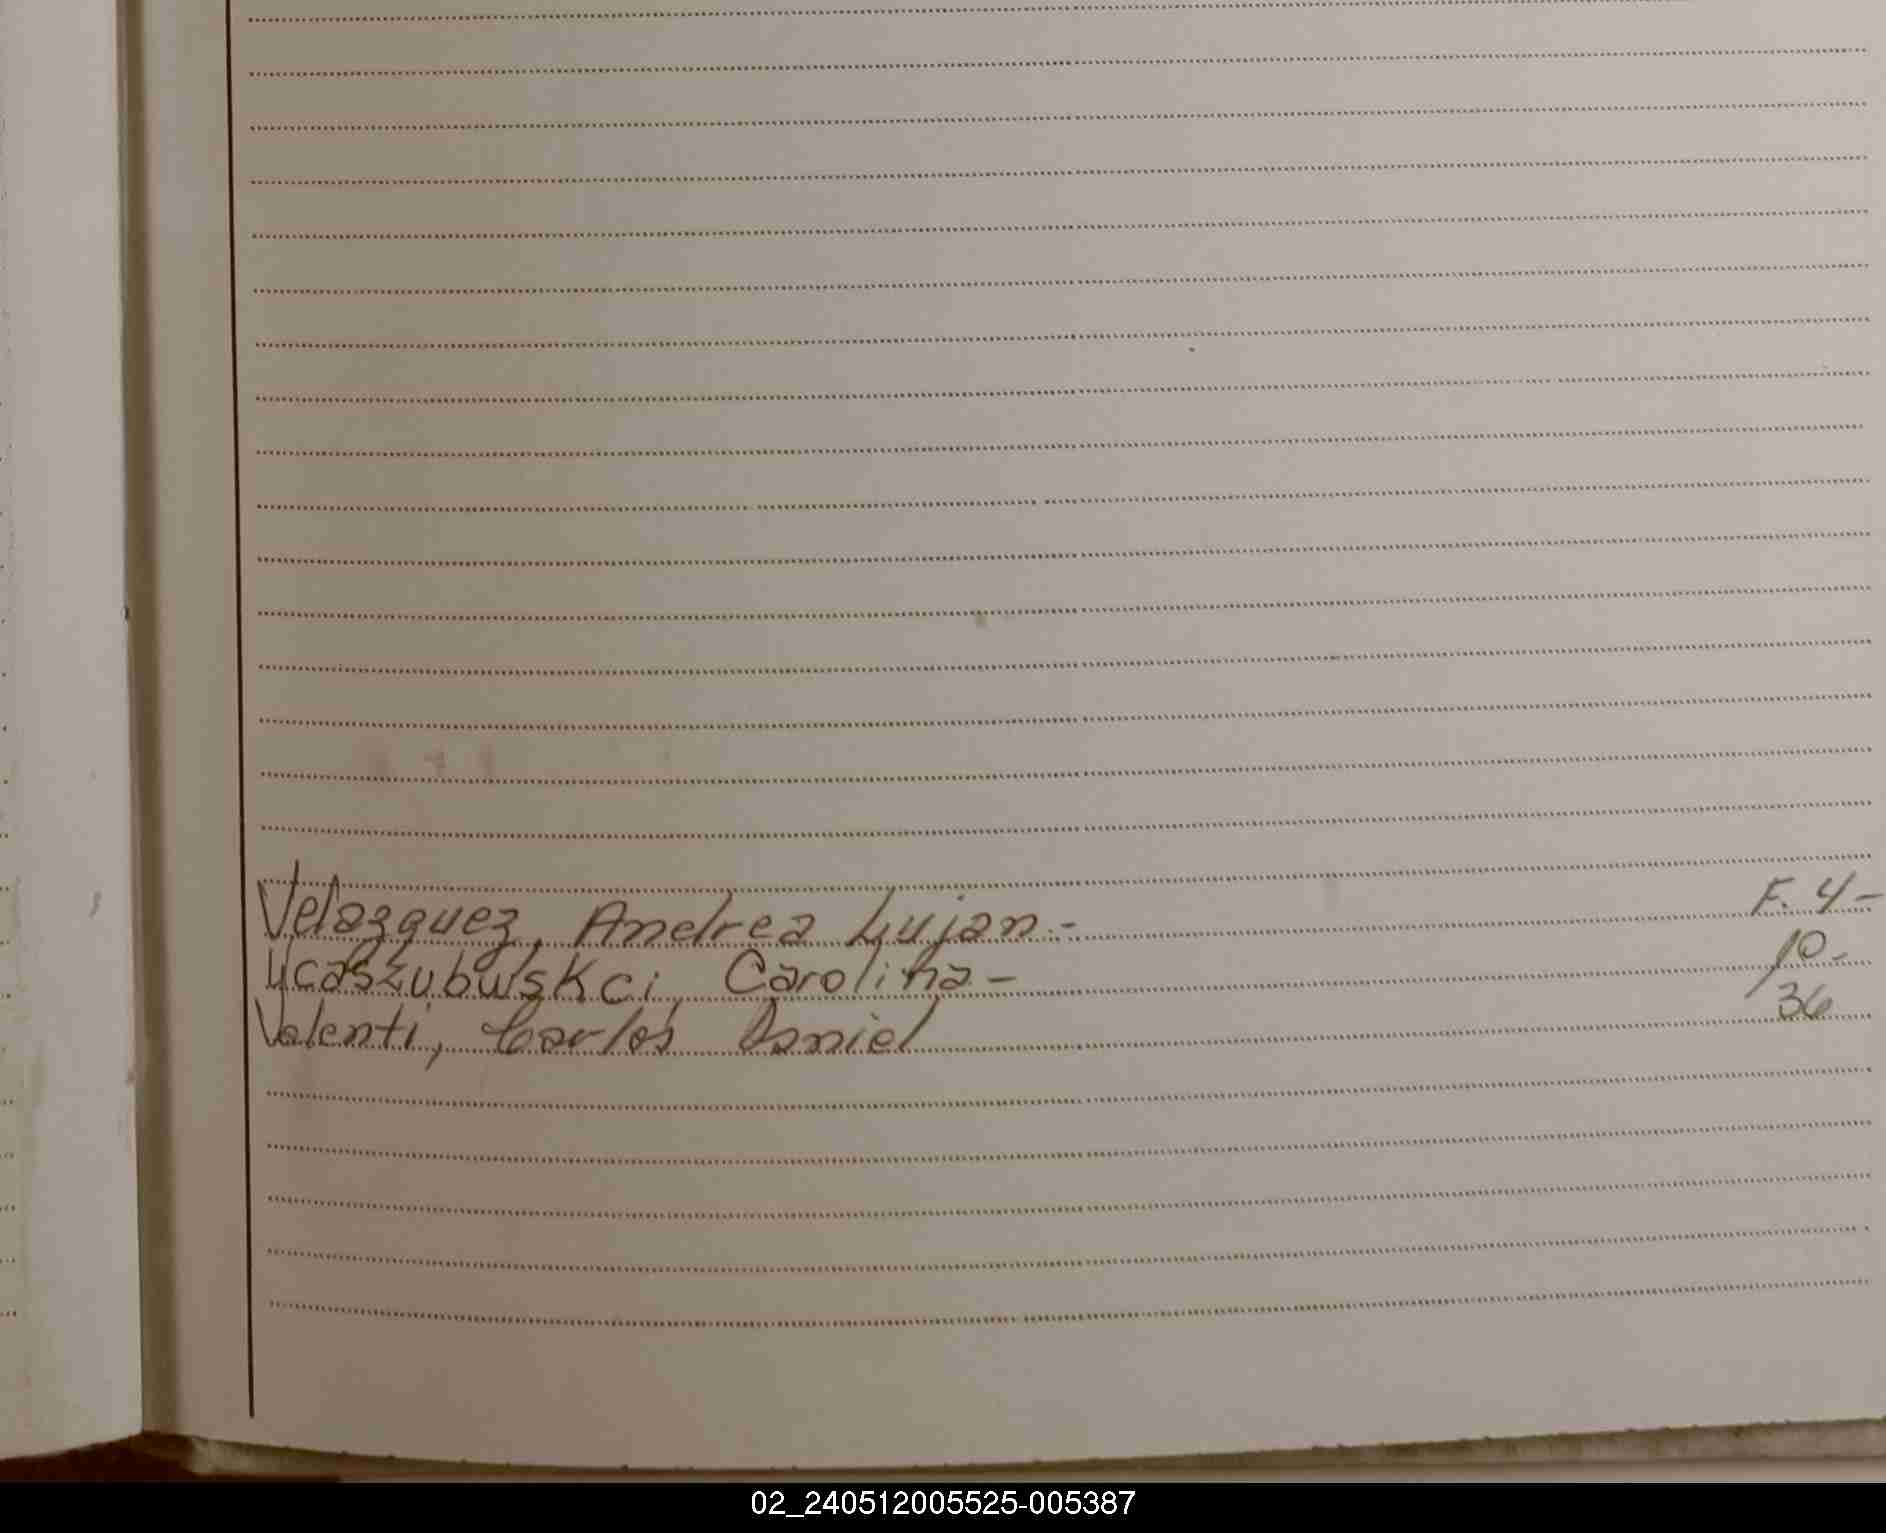 Velazquez, Andrea Lujan.- F. 4-
Ucaszubwskci, Carolina- 10-
Valenti, Carlos Daniel 36
02_240512005525-005387